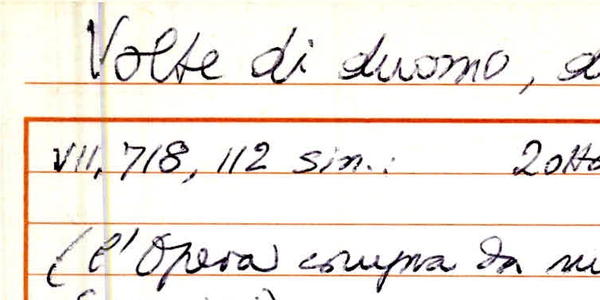 Volte di duomo, d
VII, 718, 112 sin.: 2 otto
(l'Opera compra da